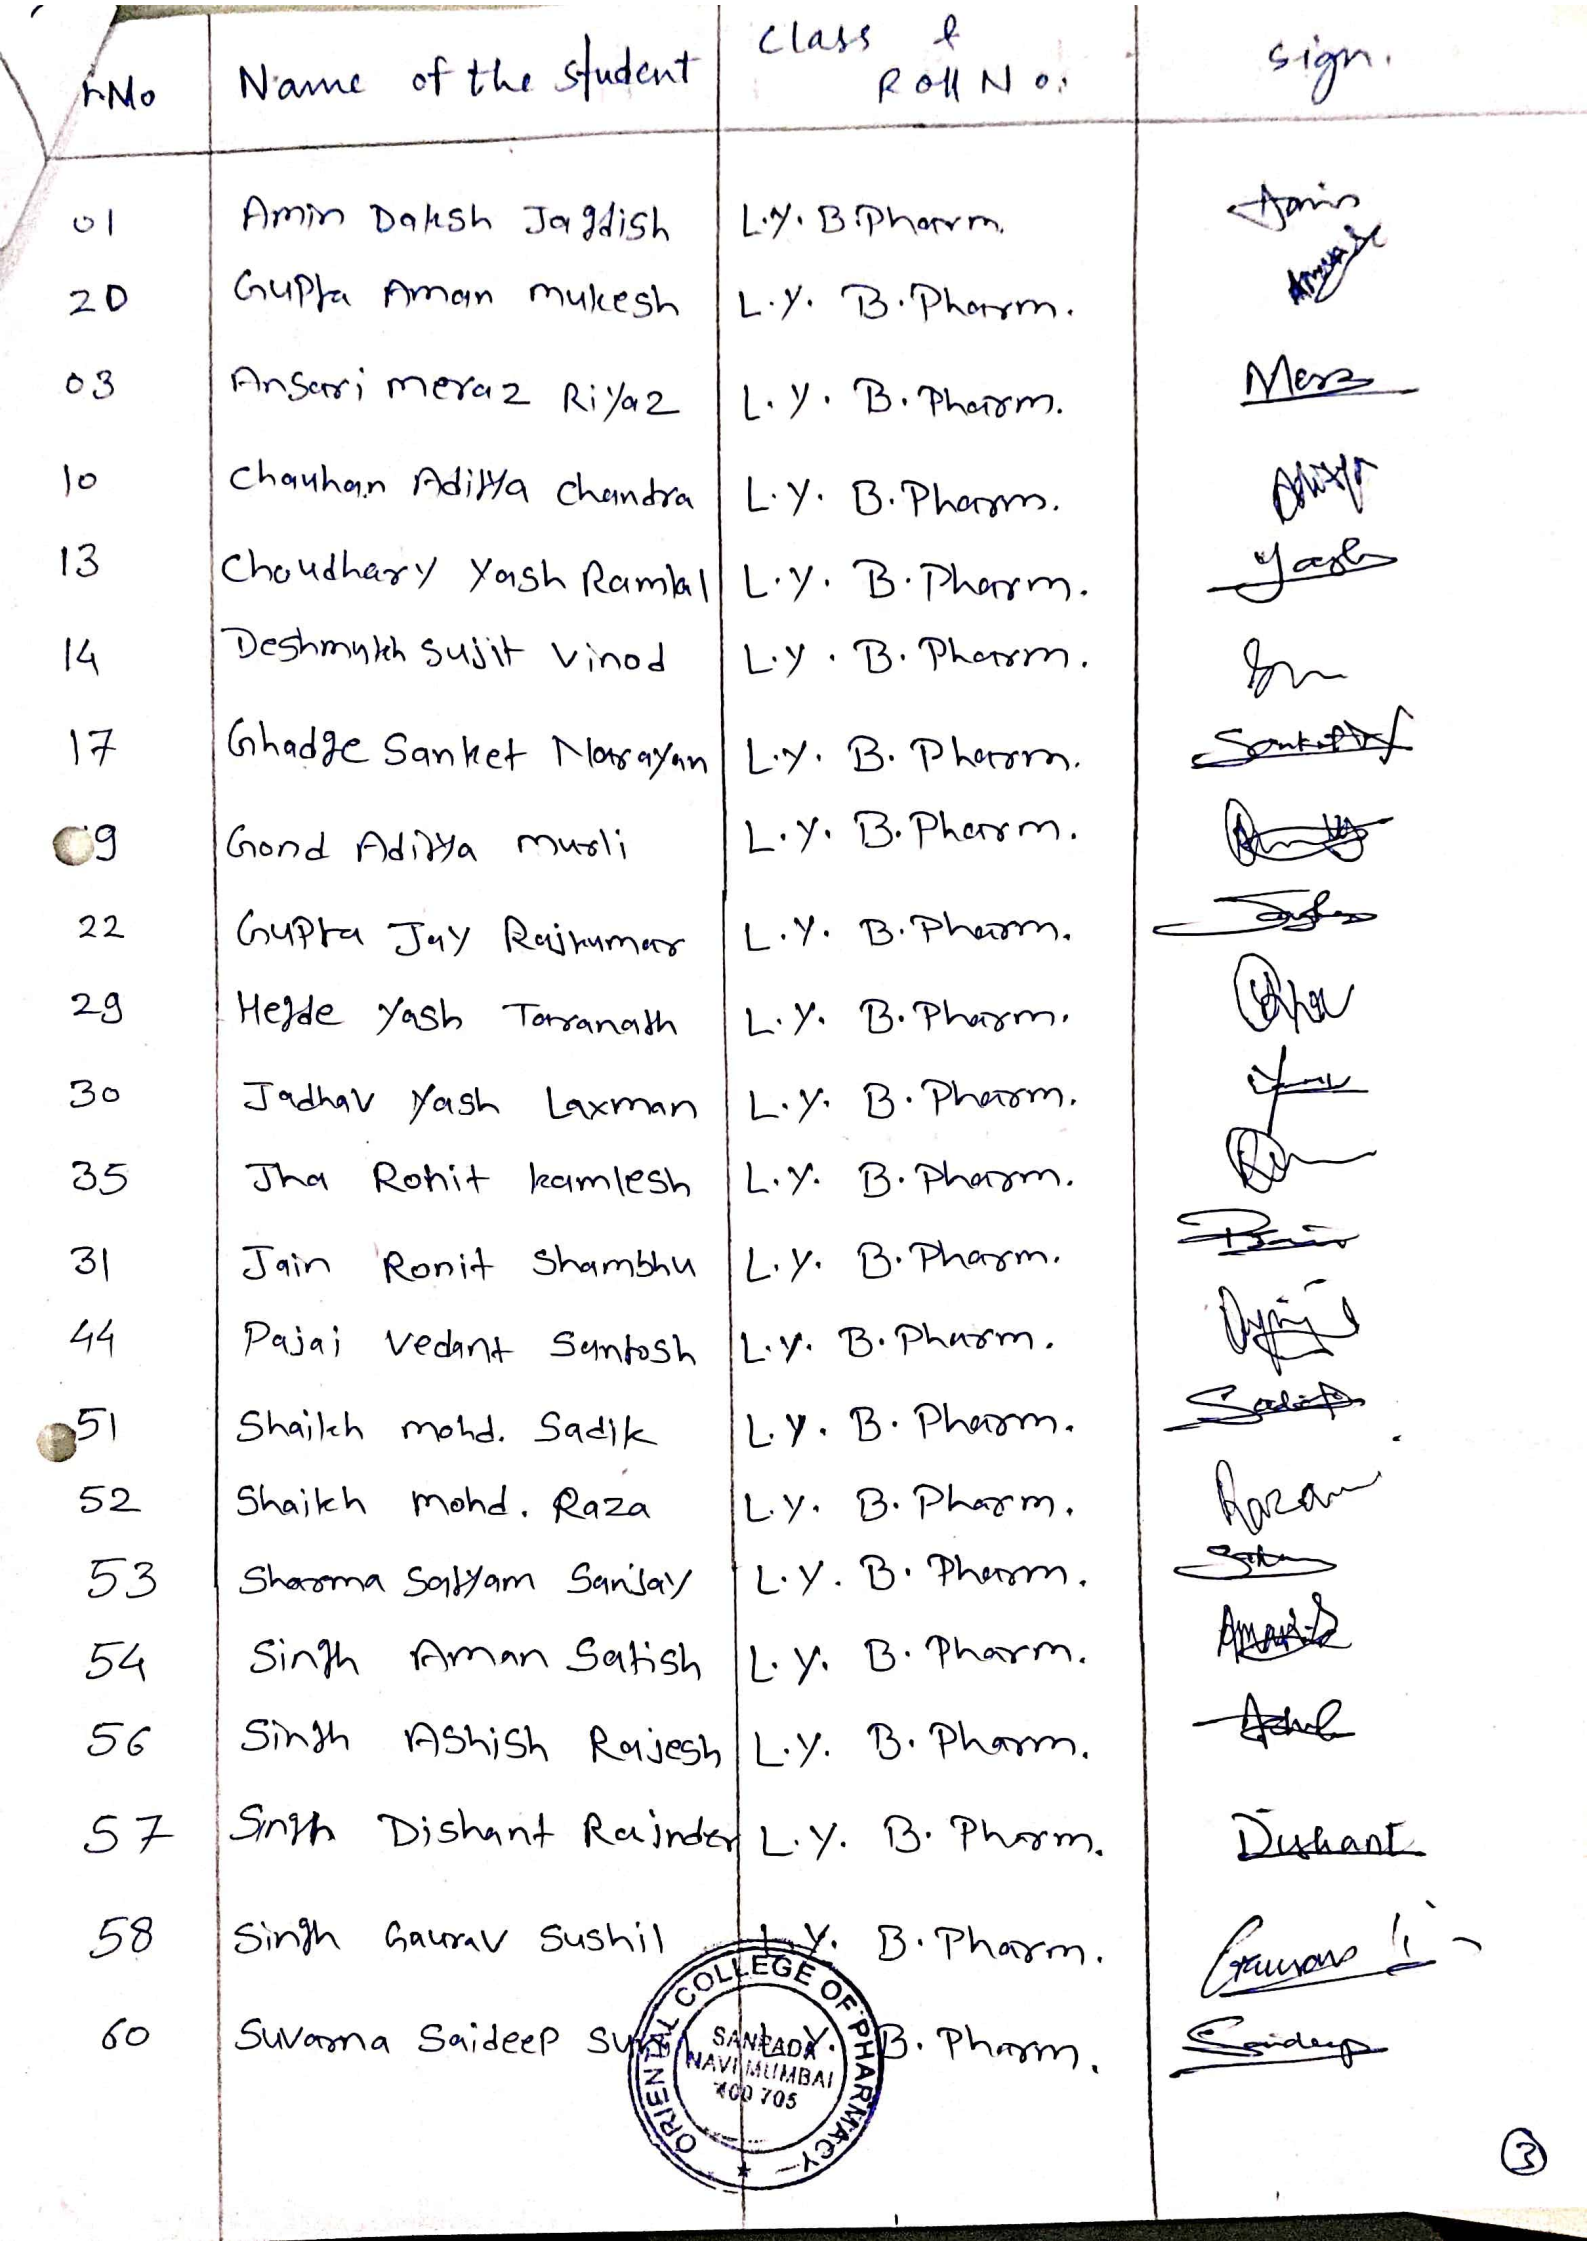 rNo Name of the student Class & Roll No. Sign.
01 Amin Daksh Jagdish L.Y. B.Pharm. Amin
20 Gupta Aman mukesh L.Y. B.Pharm.
03 Ansari meraz Riyaz L.Y. B.Pharm.
10 Chauhan Aditya Chandra L.Y. B.Pharm. Aditya
13 Choudhary Yash Ramlal L.Y. B.Pharm. Yash
14 Deshmukh Sujit Vinod L.Y. B.Pharm.
17 Ghadge Sanket Narayan L.Y. B.Pharm.
9 Gond Aditya murli L.Y. B.Pharm.
22 Gupta Jay Rajkumar L.Y. B.Pharm.
29 Hegde Yash Taranath L.Y. B.Pharm.
30 Jadhav Yash Laxman L.Y. B.Pharm.
35 Jha Rohit kamlesh L.Y. B.Pharm.
31 Jain Ronit Shambhu L.Y. B.Pharm.
44 Pajai Vedant Santosh L.Y. B.Pharm.
51 Shaikh mohd. Sadik L.Y. B.Pharm.
52 Shaikh mohd. Raza L.Y. B.Pharm.
53 Sharma Satyam Sanjay L.Y. B.Pharm.
54 Singh Aman Satish L.Y. B.Pharm.
56 Singh Ashish Rajesh L.Y. B.Pharm.
57 Singh Dishant Rajinder L.Y. B.Pharm. Dishant
58 Singh Gaurav Sushil L.Y. B.Pharm. Gaurav
60 Suvarna Saideep L.Y. B.Pharm. Saideep
ORIENTAL COLLEGE OF PHARMACY
SANPADA
NAVI MUMBAI
400 705
3